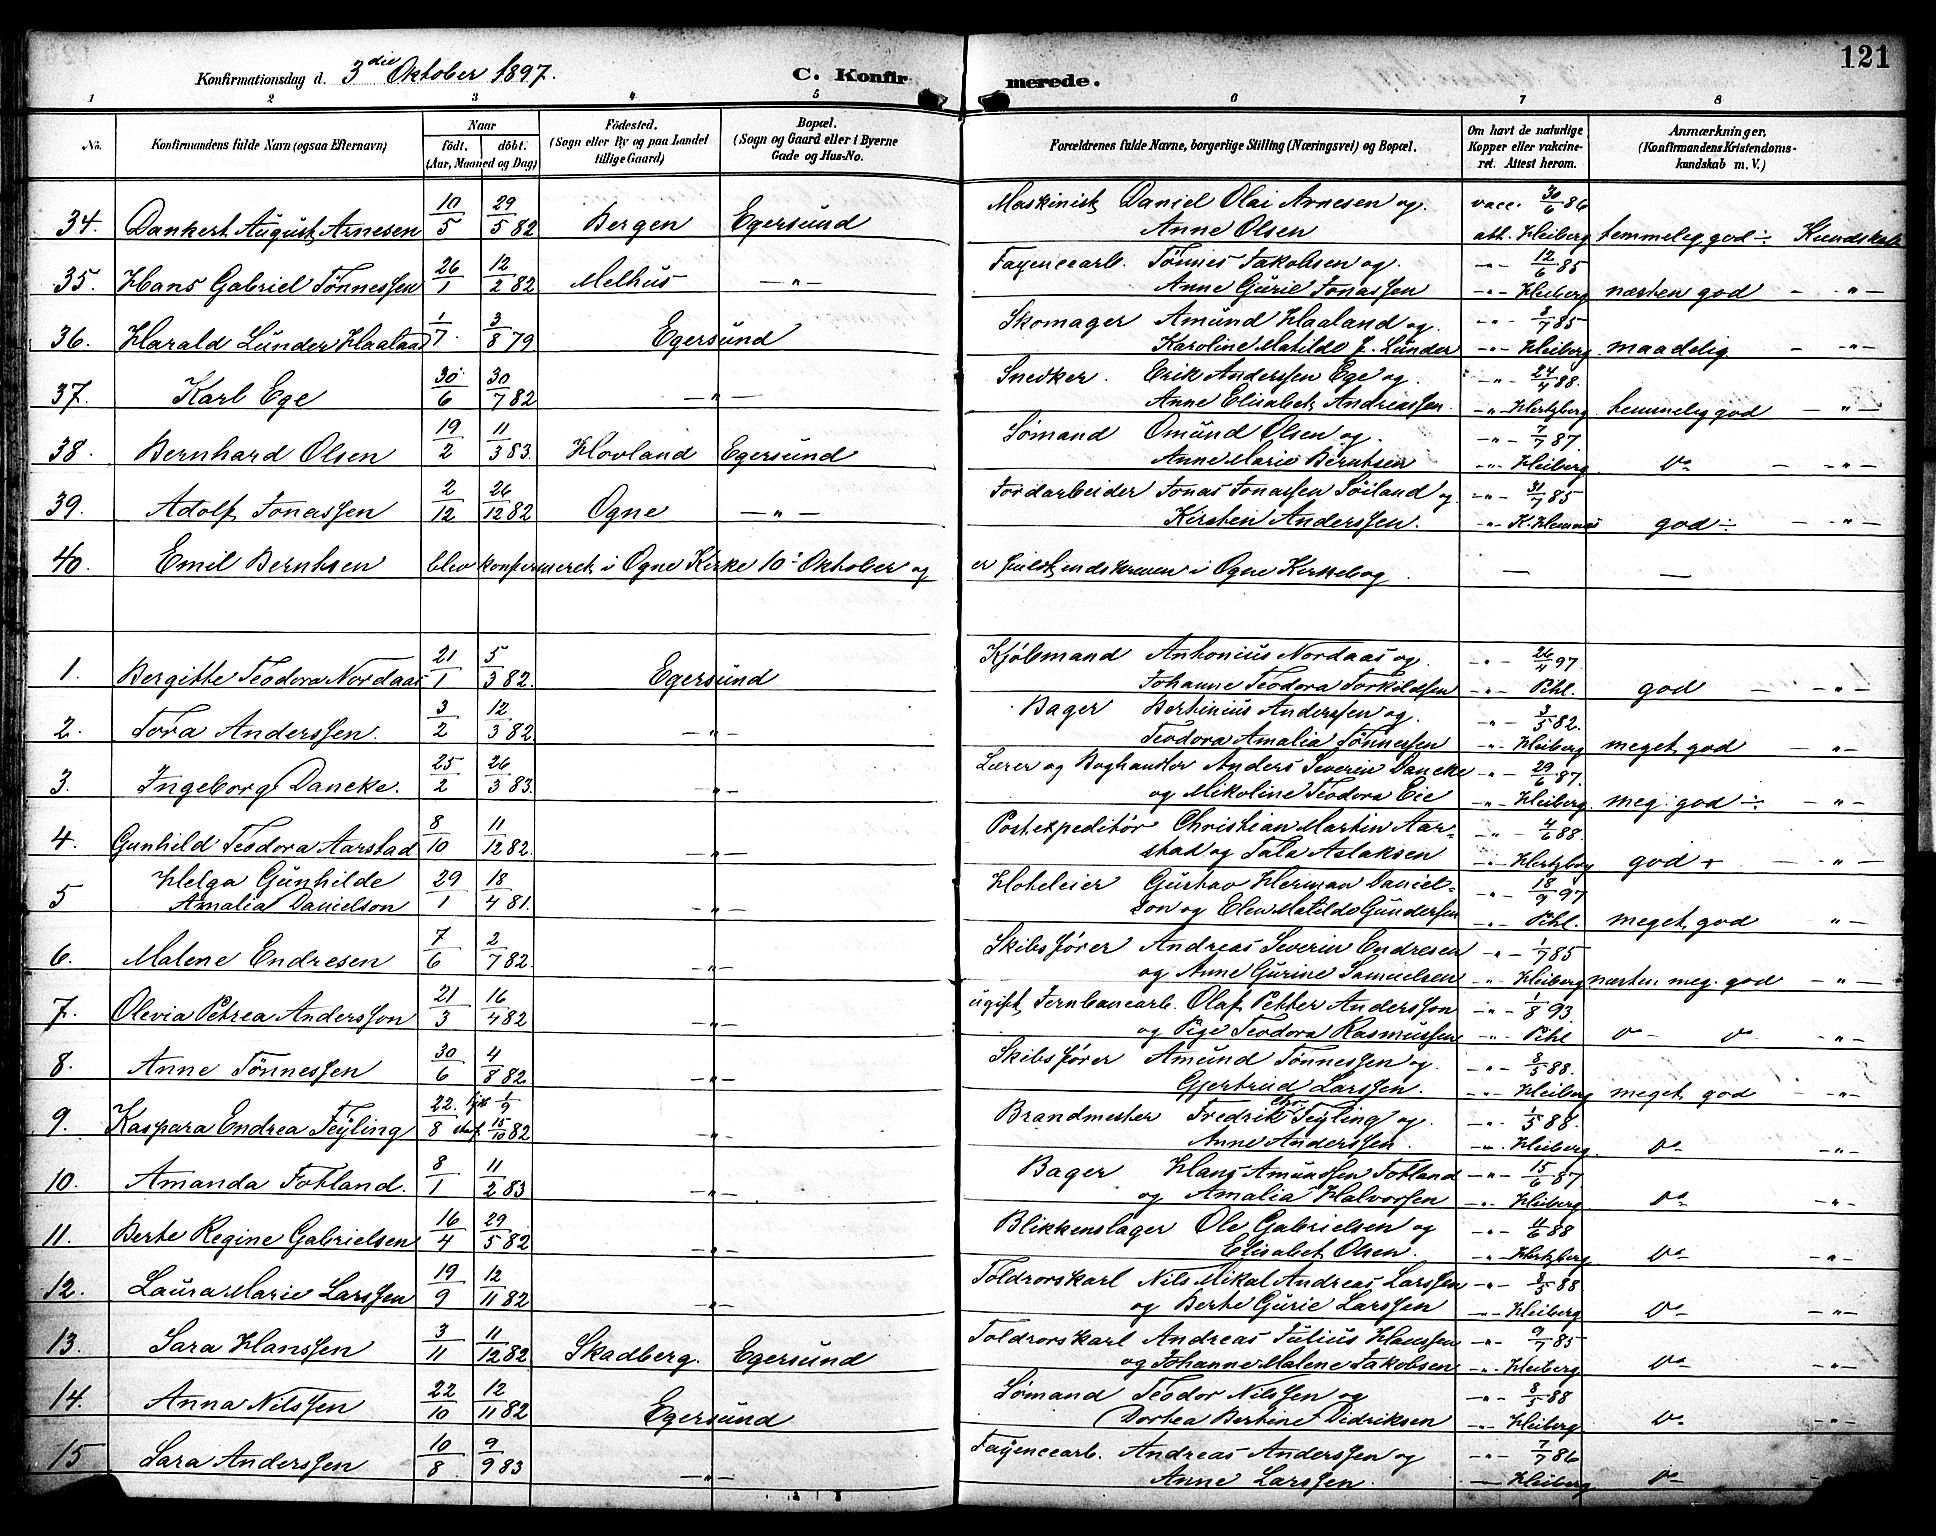 121
Konfirmationsdag d. 3die Oktober 1897. C. Konfirmerede.
1 2 3 4 5 6 7 8
No. Konfirmandens fulde Navn (ogsaa Efternavn) Naar født. døbt. (Aar, Maaned og Dag) Fødested. (Sogn eller By og paa Landet tillige Gaard) Bopæl. (Sogn og Gaard eller i Byerne Gade og Hus-No. Forældrenes fulde Navne, borgerlige Stilling (Næringsvei) og Bopæl. Om havt de naturlige Kopper eller vakcineret. Attest herom. Anmærkninger. (Konfirmandens Kristendomskundskab m. V.)
34. Dankert August Arnesen 10/5 29/5 82 Bergen Egersund Maskinist Daniel Olai Arnesen og vacc. 30/6 86
Anne Olsen att. Heiberg temmelig god ÷ Kundskab
35. Hans Gabriel Tønnessen 26/1 12/2 82 Melhus —"— Fayencearb. Tønnes Jakobsen og —"— 12/6 85
Anne Gurie Jonassen —"— Heiberg næsten god — —"—
36. Harald Lunder Haaland 1/7 3/8 79 Egersund Skomager Amund Haaland og —"— 3/7 85
Karoline Matilde f. Lunder —"— Heiberg maadelig — —"—
37. Karl Ege 30/6 30/7 82 —"— Snedker Erik Anderssen Ege og —"— 24/4 88.
Anne Elisabet Andreassen. —"— Hertzberg temmelig god — —"—
38. Bernhard Olsen 19/2 11/3 83. Hovland Egersund Sømand Omund Olsen og —"— 7/7 87.
Anne Marie Berntsen —"— Heiberg Do — —"—
39. Adolf Jonassen 2/12 26/12 82 Ogne —"— Jordarbeider Jonas Jonassen Søiland og —"— 31/7 85
Kirsten Anderssen. —"— K. Hemnæs god ÷ — —"—
40. Emil Berntsen blev konfirmeret i Ogne Kirke 10' Oktober og er fuldst. indskreven i Ogne Kirkebog — —
1. Bergitte Teodora Nordaas 21/1 5/3 82. Egersund Kjøbmand Antonius Nordaas og —"— 26/4 97.
Johanne Teodora Torkildsen —"— Pihl. god — —"—
2. Tora Anderssen. 3/2 12/3 82. —"— Bager Bertinius Anderssen og —"— 3/5 82.
Teodora Amalia Tønnessen —"— Heiberg meget god — —"—
3. Ingeborg Dancke. 25/2 26/3 83. —"— Lærer og Boghandler Anders Severin Dancke —"— 29/6 87.
og Nikoline Teodora Eie —"— Heiberg meg. god ÷ —"—
4. Gunhild Teodora Aarstad 8/10 11/12 82. —"— Postexpeditør Christian Martin Aar- —"— 4/6 88.
stad og Tala Aslaksen —"— Hertzberg god + — —"—
5 Helga Gunhilde 29/1 18/4 81. —"— Hoteleier Gustav Herman Daniel- —"— 18/9 97
Amalia Danielson son og Elen Matilde Gundersen —"— Pihl. meget god —"—
6. Malene Endresen 7/6 2/7 82. —"— Skibsfører Andreas Severin Endresen —"— 1/7 85
og Anne Gurine Samuelsen —"— Heiberg næsten meg. god —"—
7. Olevia Petrea Andersson 21/3 16/4 82 —"— ugift Jernbanearb. Olaf Petter Andersson —"— 1/8 93.
og Pige Teodora Rasmussen —"— Pihl Do Do —"—
8. Anne Tønnessen 30/6 4/8 82. —"— Skibsfører Amund Tønnessen og —"— 3/5 88.
Gjertrud Larssen. —"— Heiberg meget god —"—
9. Kaspara Endrea Feyling 22/8 1/9 15/10 82 —"— Brandmester Fredrik Chr. Feyling og —"— 1/5 88.
Anne Anderssen. —"— Heiberg. Do —"—
10. Amanda Fotland. 8/1 11/2 83 —"— Bager Hans Amundsen Fotland —"— 15/6 87
og Amalia Halvorsen —"— Heiberg. Do —"—
11. Berte Regine Gabrielsen 16/4 29/5 82 —"— Blikkenslager Ole Gabrielsen og —"— 11/6 88
Elisabet Olsen. —"— Hertzberg Do —"—
12. Laura Marie Larssen 19/9 12/11 82 —"— Toldrorskarl Nils Mikal Andreas Larssen —"— 3/5 88
og Berte Gurie Larssen —"— Heiberg Do —"—
13. Sara Hanssen 3/11 11/12 82 Skadberg. Egersund Toldrorskarl Andreas Julius Hanssen —"— 9/7 85
og Johanne Malene Jakobsen —"— Heiberg Do —"—
14. Anna Nilssen 22/10 12/11 82 Egersund Sømand Teodor Nilssen og —"— 3/5 88
Dortea Bertine Didriksen —"— Heiberg. Do —"—
15 Sara Anderssen 10/8 9/9 83 —"— Fayencearb. Andreas Anderssen og —"— 7/7 86
Anne Larssen. — Heiberg Do —"—